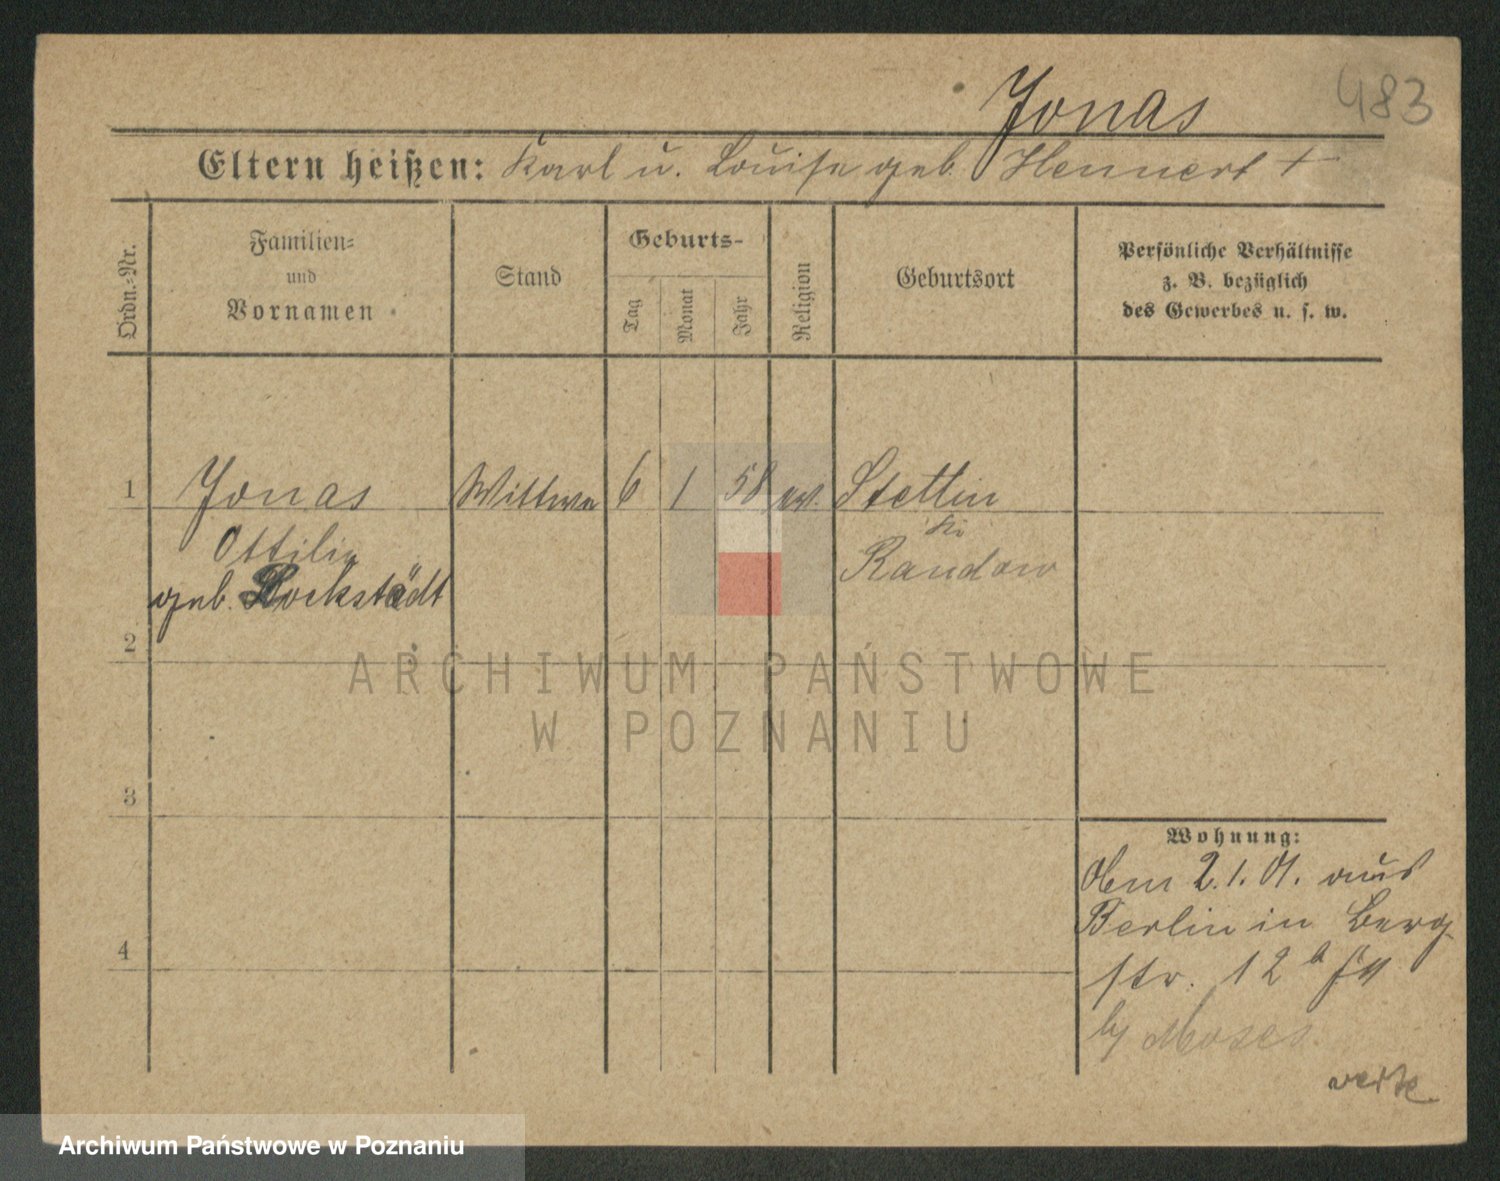 483
Jonas
Eltern heißen: Karl u. Louise geb. Hennert +
Ordn.-Nr.
Familien-
und
Vornamen
Stand
Geburts-
Tag
Monat
Jahr
Religion
Geburtsort
Persönliche Verhältnisse
z. B. bezüglich
des Gewerbes u. s. w.
1 Jonas Wittwe 6 1 58 ev. Stettin
Ottilie
Kr
Randow
geb. Rockstädt
2
ARCHIWUM PAŃSTWOWE
W POZNANIU
3
Wohnung:
2.1.01. aus
Berlin in Berg
4
str. 12
Moses
Archiwum Państwowe w Poznaniu